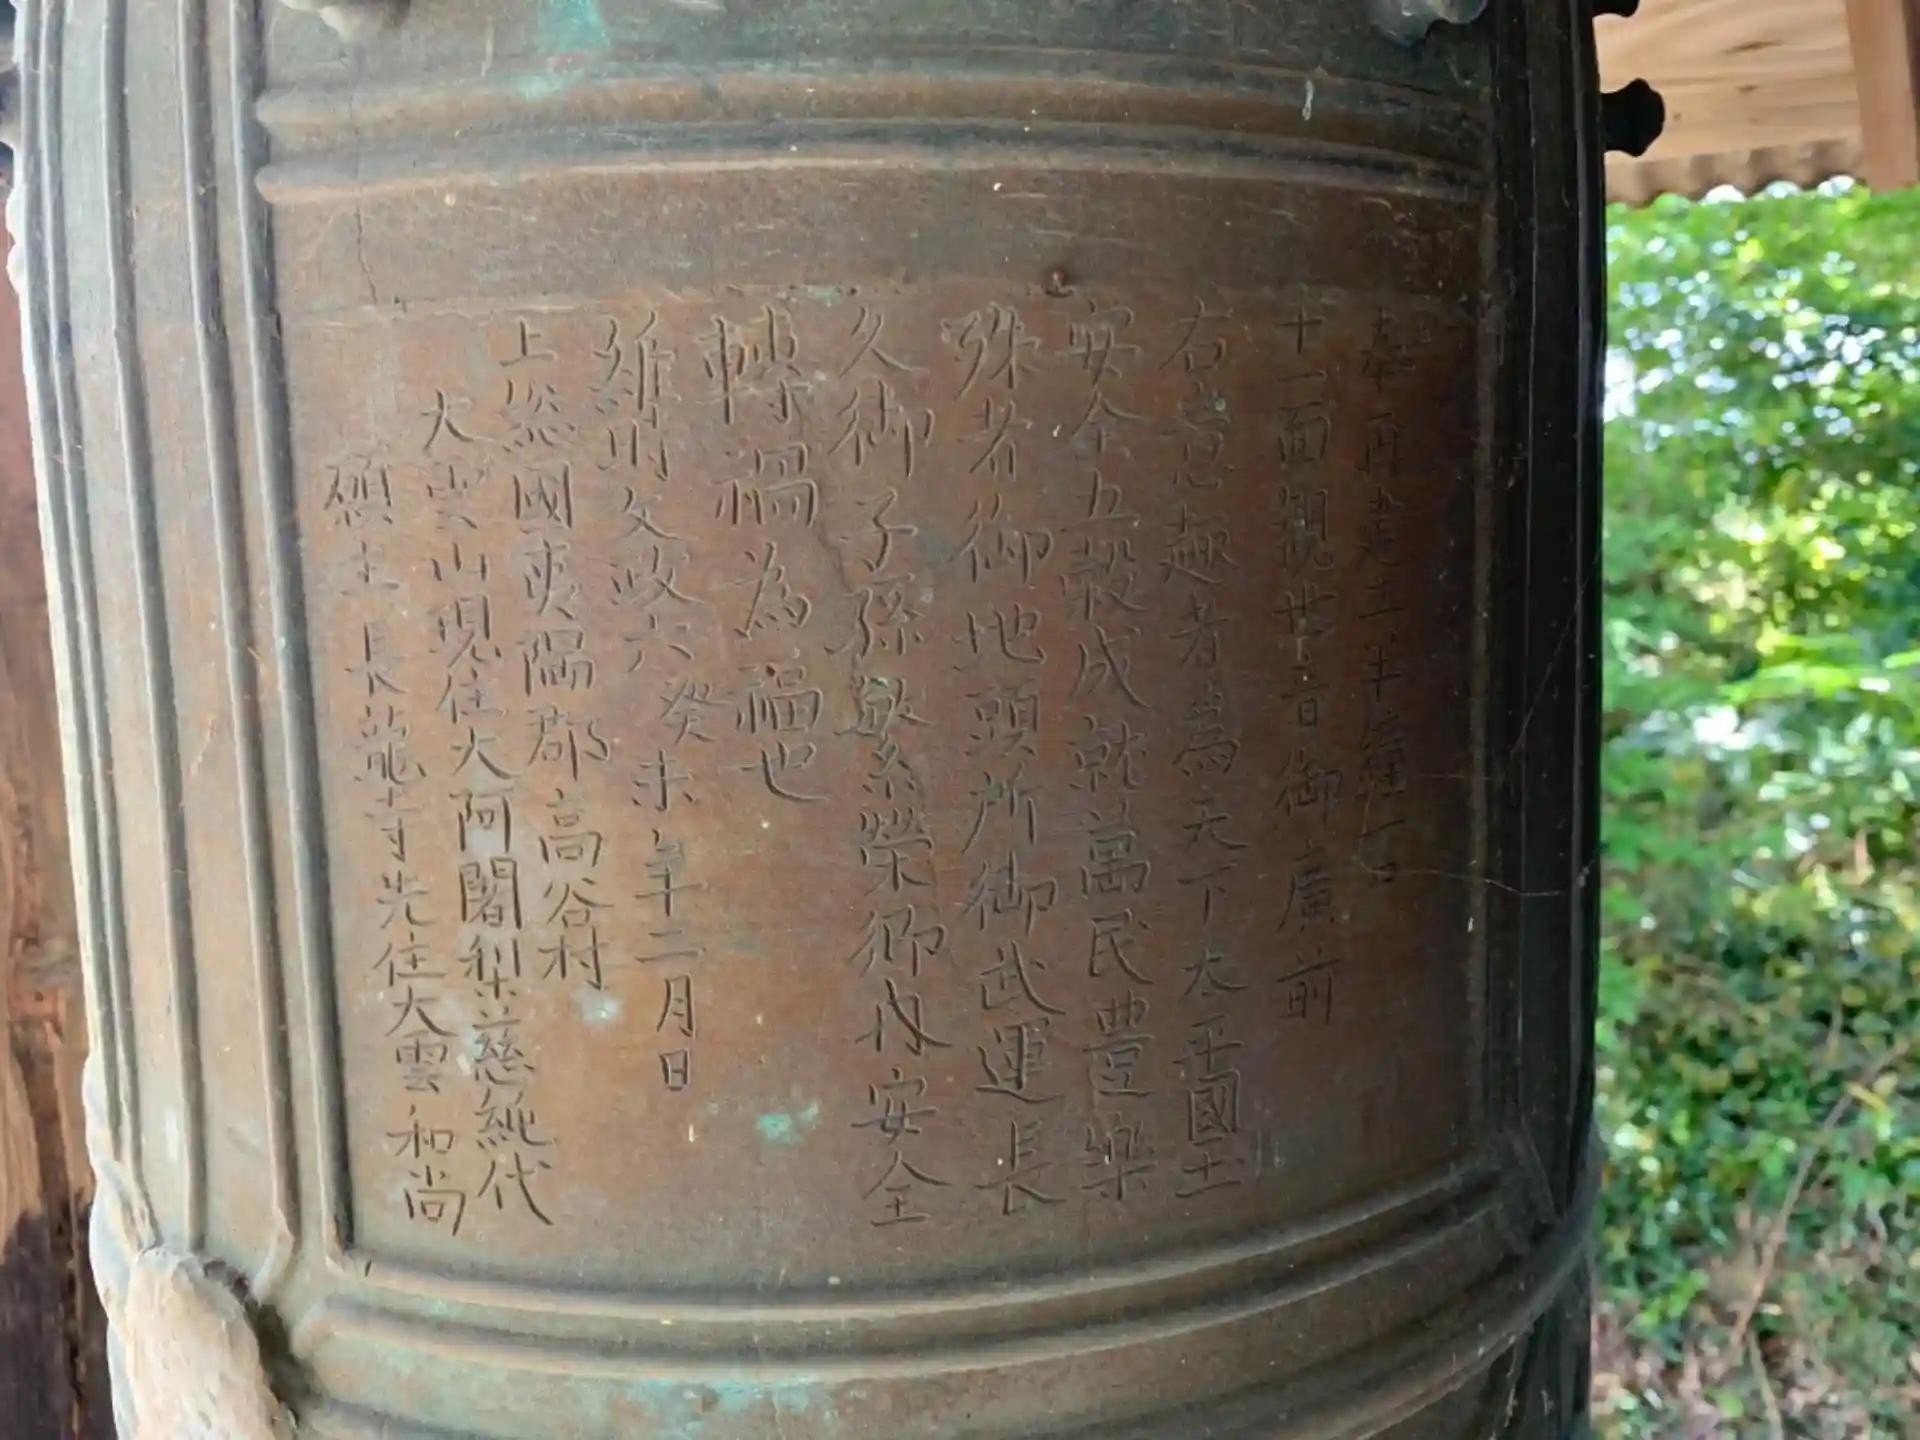 奉再建二半鐘一口
十一面觀世音御廣前
右意趣者為天下太平國土
安全五穀成就萬民豊樂
殊者御地頭所御武運長
久御子孫繁榮郷内安全
轉禍為福也
維時文政六癸未年二月日
上総國夷隅郡高谷村
大雲山現住大阿闍梨慈純代
願主長龍寺先住大雲和尚